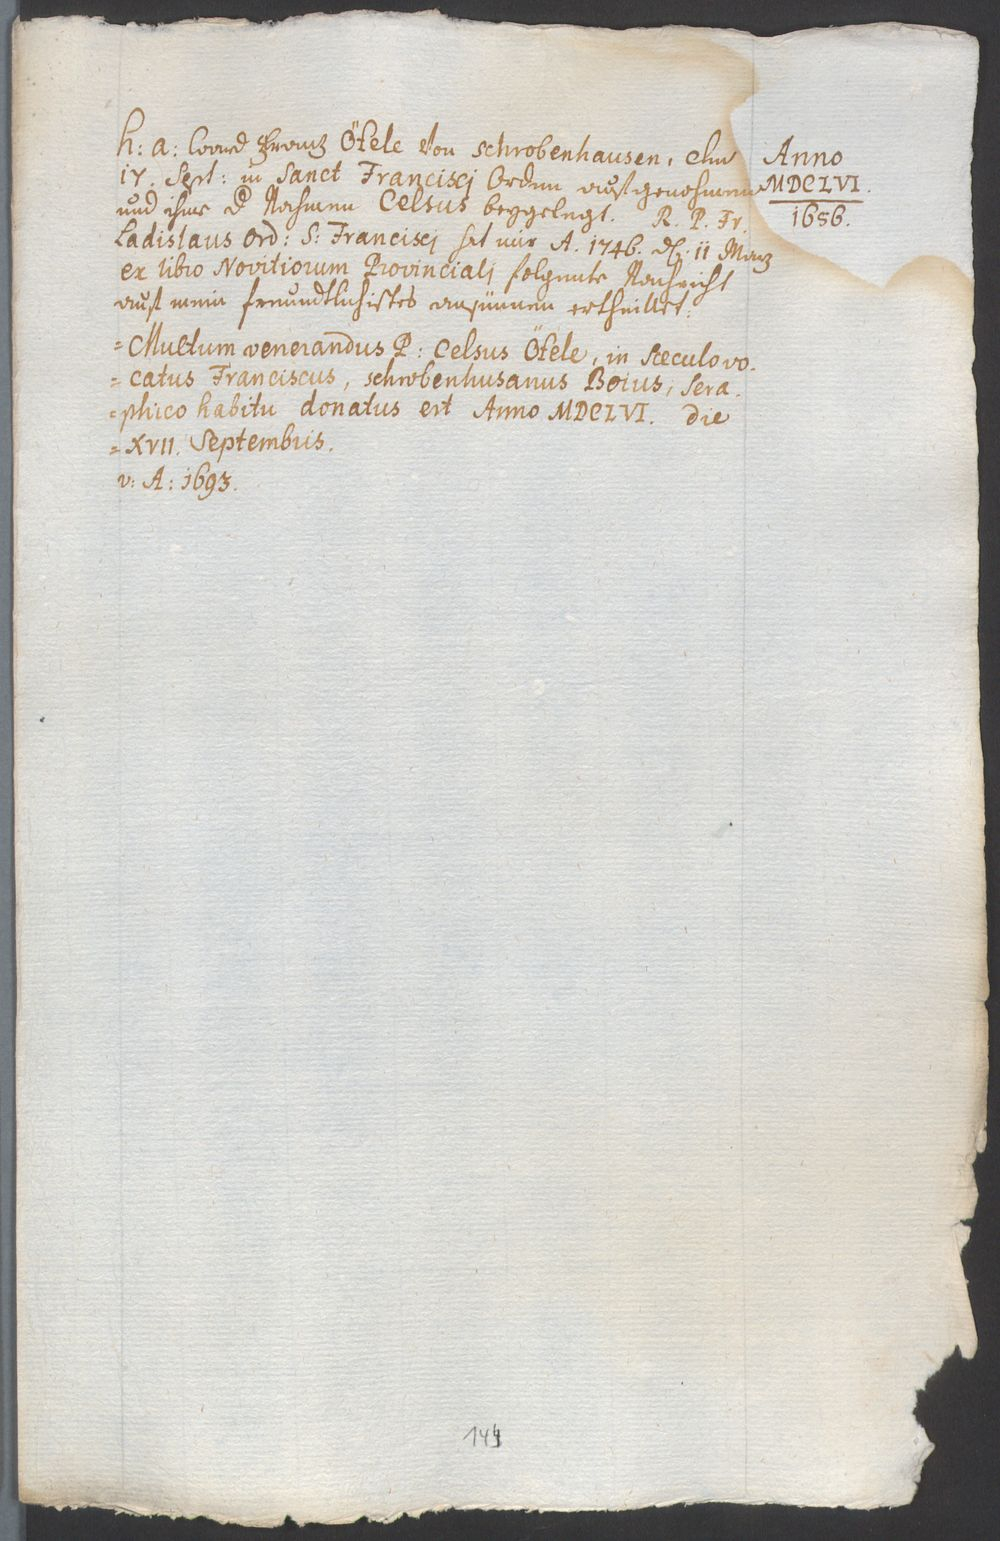 Anno
MDCLVI.
1656.
h: a: ward Franz Öfele Von schrobenhausen, den
17. Sept: in Sanct Francisci Orden aufgenohmen
und ihme d Nahmen Celsus beygelegt. R. P. Fr.
Ladislaus Ord: S: Francisci hat mir A. 1746. d. 11 Marz
ex libro Novitiorum Provinciali folgente Nachricht
auf mein freundtlichistes ansünnen ertheillet:
= Multum venerandus P: Celsus Öfele, in sæculo vo-
= catus Franciscus, schrobenhusanus Boius, sera-
= phico habitu donatus est Anno MDCLVI. die
= XVII. Septembris.
v: A: 1693.
144